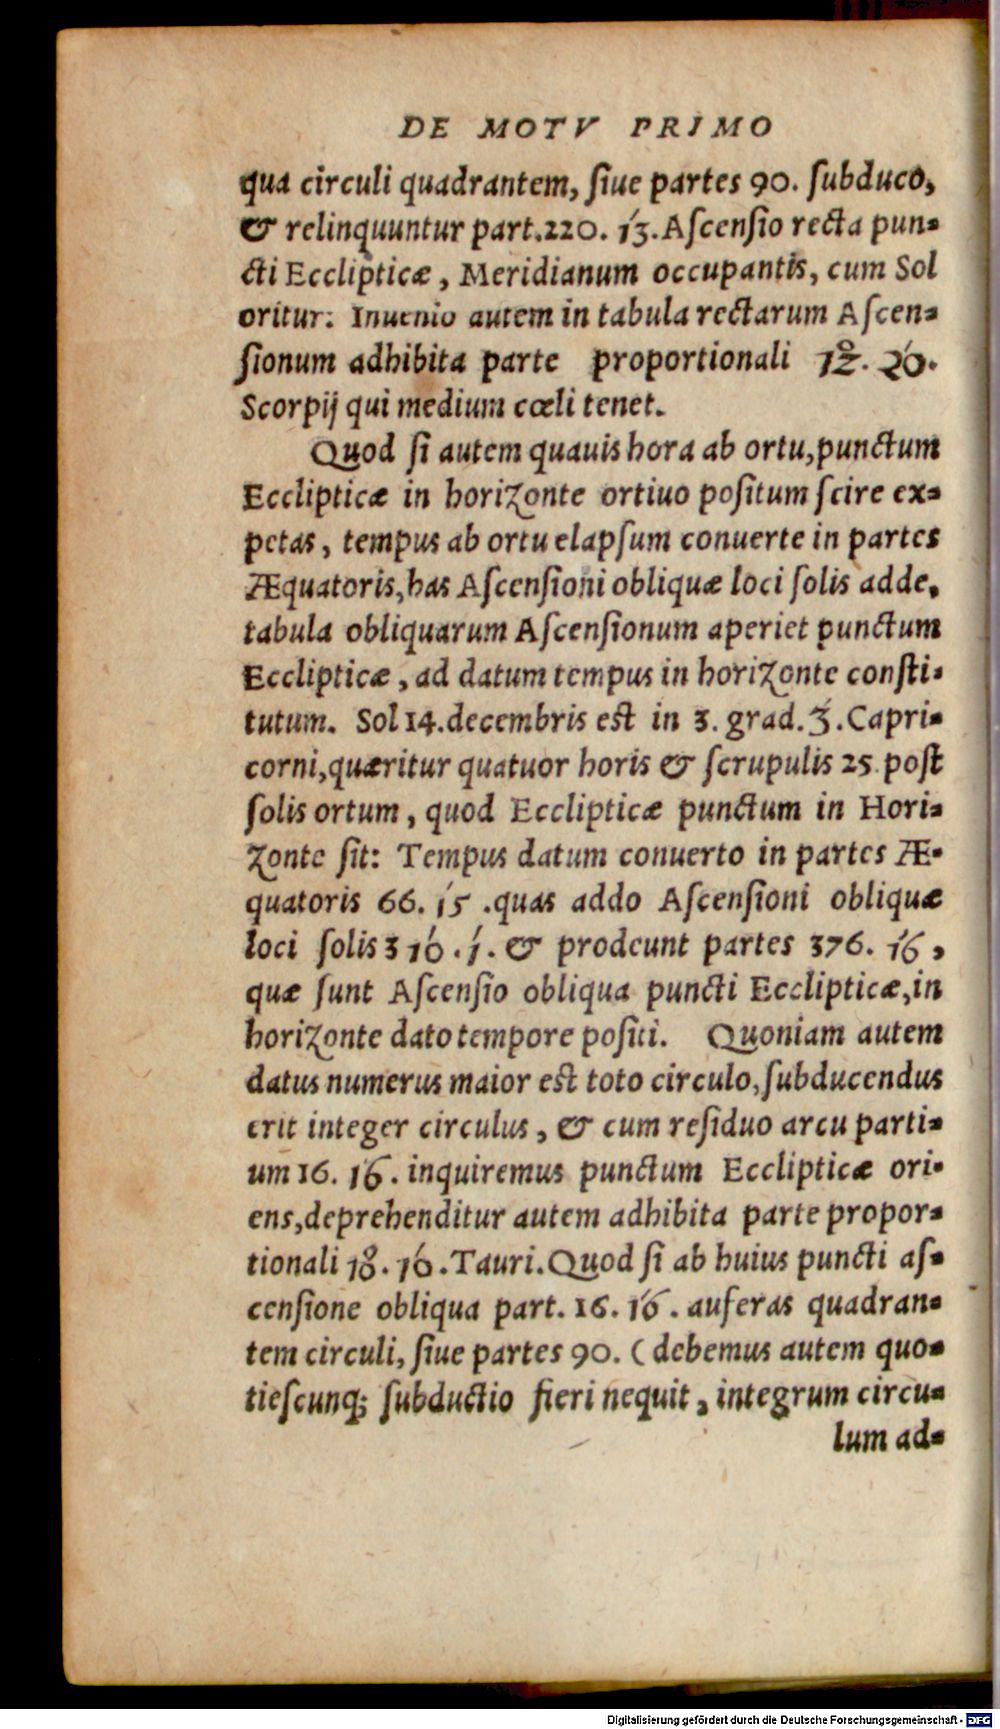 DE MOTV PRIMO
qua circuli quadrantem, ſiue partes 90. ſubduco,
& relinquuntur part.220. 1́3.Aſcenſio recta pun-
cti Ecclipticæ, Meridianum occupantis, cum Sol
oritur: Inuenio autem in tabula rectarum Aſcen-
ſionum adhibita parte proportionali 12̊. 20́.
Scorpij qui medium cœli tenet.
Quod ſi autem quauis hora ab ortu, punctum
Ecclipticæ in horizonte ortiuo poſitum ſcire ex-
petas, tempus ab ortu elapſum conuerte in partes
Æquatoris, has Aſcenſioni obliquæ loci ſolis adde,
tabula obliquarum Aſcenſionum aperiet punctum
Ecclipticæ, ad datum tempus in horizonte conſti-
tutum. Sol 14.decembris eſt in 3. grad. 3́.Capri-
corni, quæritur quatuor horis & ſcrupulis 25 poſt
ſolis ortum, quod Ecclipticæ punctum in Hori-
zonte ſit: Tempus datum conuerto in partes Æ-
quatoris 66. 1́5 .quas addo Aſcenſioni obliquæ
loci ſolis 310 . 1́. & prodeunt partes 376. 1́6,
quæ ſunt Aſcenſio obliqua puncti Ecclipticæ, in
horizonte dato tempore poſiti. Quoniam autem
datus numerus maior eſt toto circulo, ſubducendus
erit integer circulus, & cum reſiduo arcu parti-
um 16. 1́6. inquiremus punctum Ecclipticæ ori-
ens, deprehenditur autem adhibita parte propor-
tionali 18̊. 16́.Tauri. Quod ſi ab huius puncti aſ-
cenſione obliqua part. 16. 1́6. auferas quadran-
tem circuli, ſiue partes 90. (debemus autem quo-
tieſcunq; ſubductio fieri nequit, integrum circu-
lum ad-
Digitalisierung gefördert durch die Deutsche Forschungsgemeinschaft - DFG